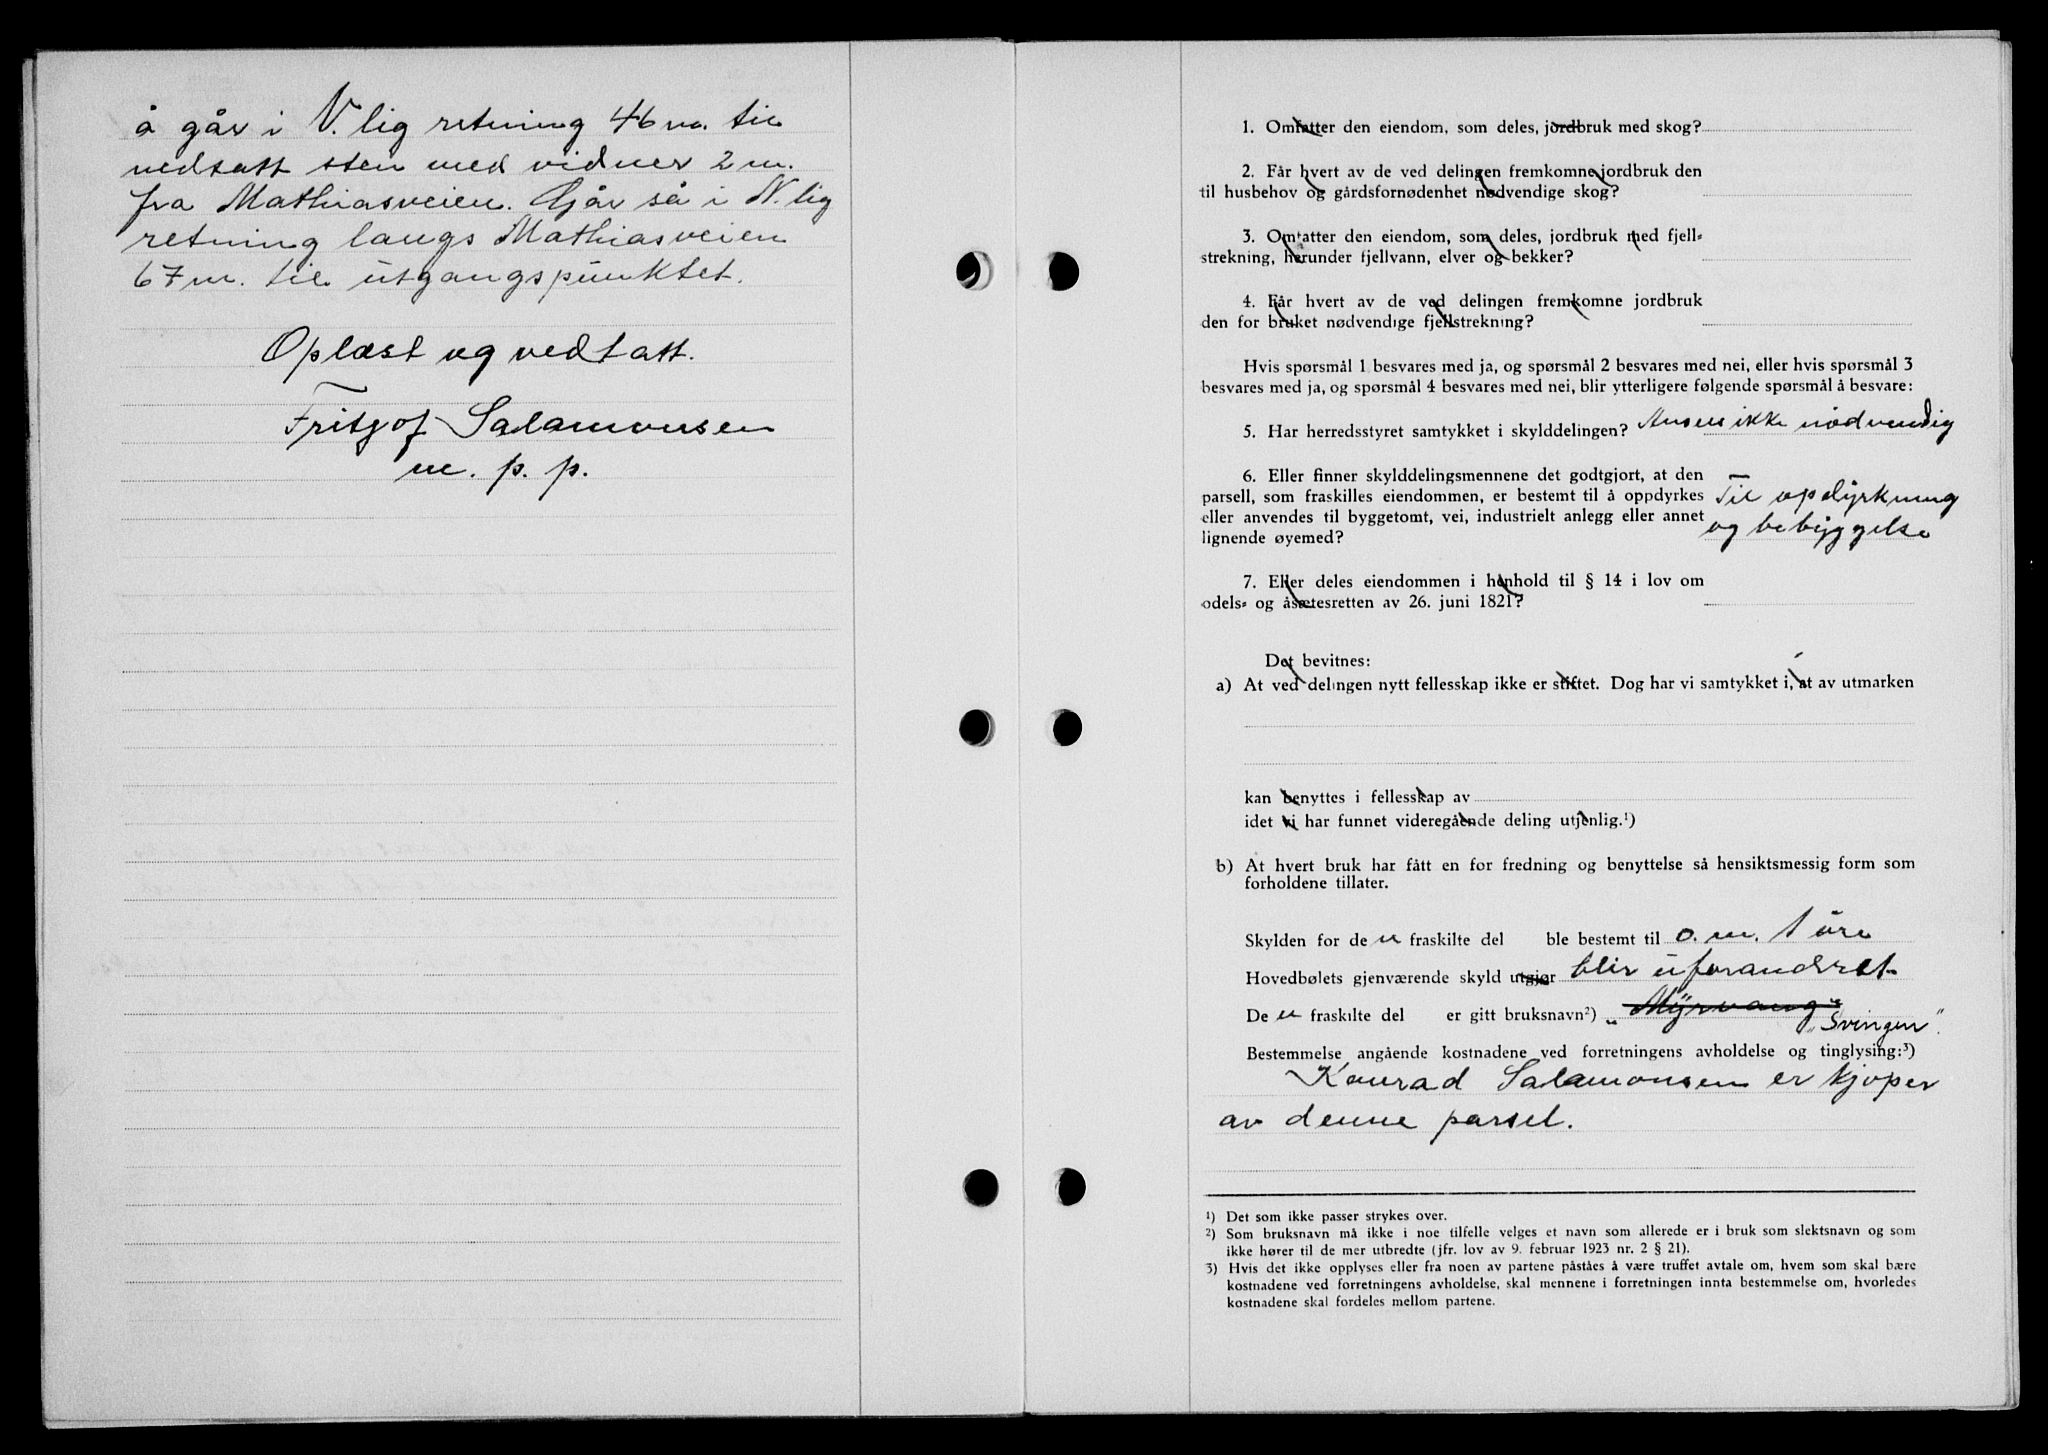 å går i V. lig retning 46 m. til
nedsatt sten med vidner 2 m.
fra Mathiasveien. Går så i N. lig
retning langs Mathiasveien
67 m. til utgangspunktet.
Oplæst og vedtatt.
Fritjof Salamonsen
m. p. p.
1. Omfatter den eiendom, som deles, jordbruk med skog?
2. Får hvert av de ved delingen fremkomne jordbruk den
til husbehov og gårdsfornødenhet nødvendige skog?
3. Omfatter den eiendom, som deles, jordbruk med fjell-
strekning, herunder fjellvann, elver og bekker?
4. Får hvert av de ved delingen fremkomne jordbruk
den for bruket nødvendige fjellstrekning?
Hvis spørsmål 1 besvares med ja, og spørsmål 2 besvares med nei, eller hvis spørsmål 3
besvares med ja, og spørsmål 4 besvares med nei, blir ytterligere følgende spørsmål å besvare:
5. Har herredsstyret samtykket i skylddelingen? Ansees ikke nødvendig
6. Eller finner skylddelingsmennene det godtgjort, at den
parsell, som fraskilles eiendommen, er bestemt til å oppdyrkes Til opdyrkning
eller anvendes til byggetomt, vei, industrielt anlegg eller annet og bebyggelse
lignende øyemed?
7. Eller deles eiendommen i henhold til § 14 i lov om
odels- og åsætesretten av 26. juni 1821?
Det bevitnes:
a) At ved delingen nytt fellesskap ikke er stiftet. Dog har vi samtykket i, at av utmarken
kan benyttes i fellesskap av
idet vi har funnet videregående deling utjenlig.¹)
b) At hvert bruk har fått en for fredning og benyttelse så hensiktsmessig form som
forholdene tillater.
Skylden for de n fraskilte del ble bestemt til 0. m. 1 øre
Hovedbølets gjenværende skyld utgjør blir uforandret
De n fraskilte del er gitt bruksnavn²) „Myrvang"
„Svingen".
Bestemmelse angående kostnadene ved forretningens avholdelse og tinglysing:³)
Konrad Salamonsen er kjøper
av denne parsel.
¹) Det som ikke passer strykes over.
²) Som bruksnavn må ikke i noe tilfelle velges et navn som allerede er i bruk som slektsnavn og som
ikke hører til de mer utbredte (jfr. lov av 9. februar 1923 nr. 2 § 21).
3) Hvis det ikke opplyses eller fra noen av partene påståes å være truffet avtale om, hvem som skal bære
kostnadene ved forretningens avholdelse, skal mennene i forretningen innta bestemmelse om, hvorledes
kostnadene skal fordeles mellom partene.